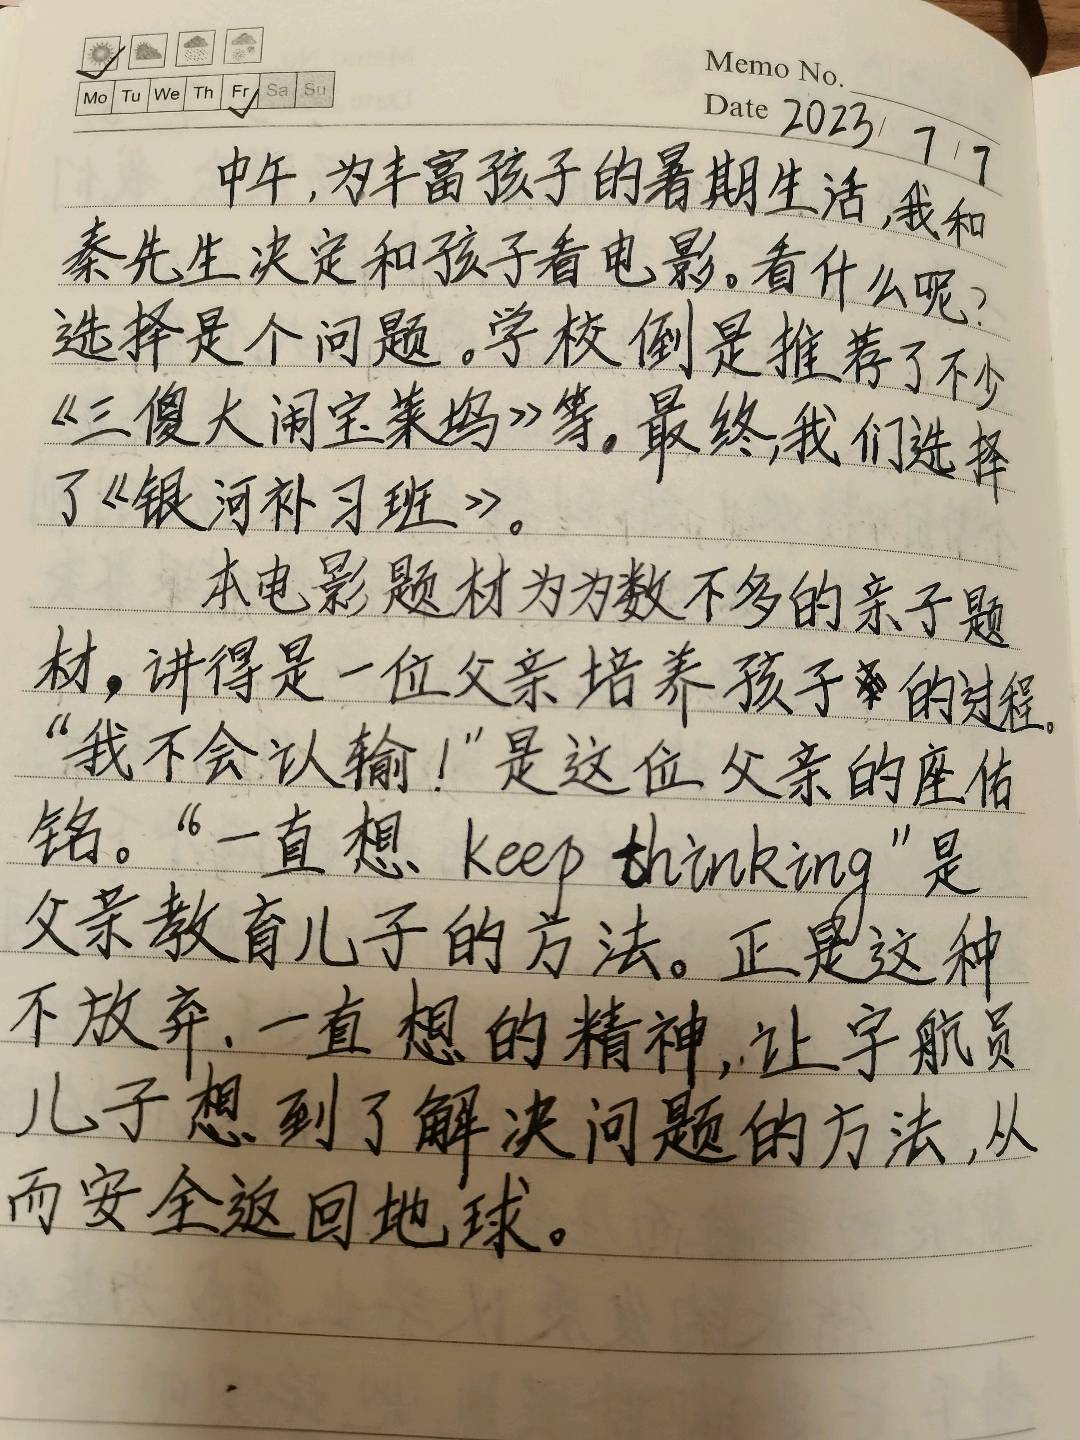 Memo No.
Mo Tu We Th Fr Sa Su
Date 2023/7/7
中午,为丰富孩子的暑期生活,我和
秦先生决定和孩子看电影。看什么呢?
选择是个问题。学校倒是推荐了不少
《三傻大闹宝莱坞》等。最终,我们选择
了《银河补习班》。
本电影题材为为数不多的亲子题
材,讲得是一位父亲培养孩子的过程。
“我不会认输!”是这位父亲的座佑
铭。“一直想 keep thinking”是
父亲教育儿子的方法。正是这种
不放弃、一直想的精神,让宇航员
儿子想到了解决问题的方法,从
而安全返回地球。